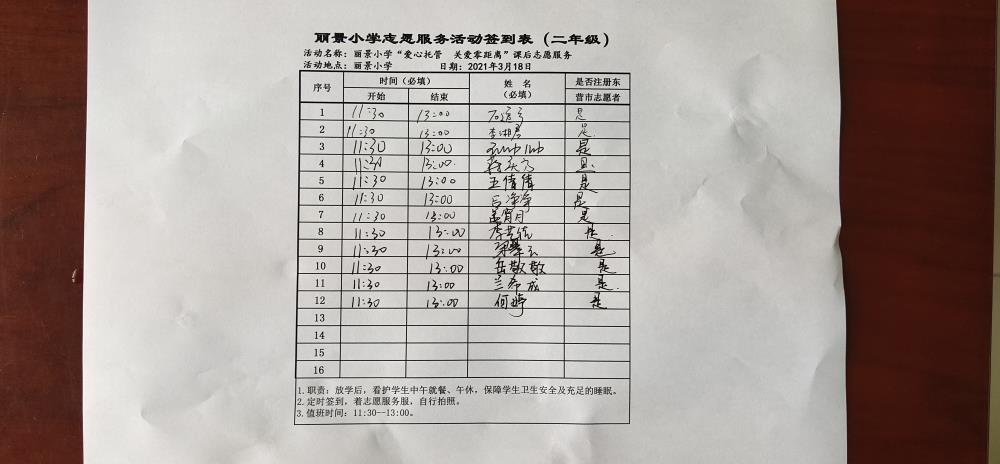 丽景小学志愿服务活动签到表（二年级）
活动名称：丽景小学“爱心托管 关爱零距离”课后志愿服务
活动地点：丽景小学 日期：2021年3月18日
序号 时间（必填） 姓 名（必填） 是否注册东营市志愿者
开始 结束
1 11:30 13:00 是
2 11:30 13:00 李湘君 是
3 11:30 13:00 是
4 11:30 13:00 是
5 11:30 13:00 王倩倩 是
6 11:30 13:00 是
7 11:30 13:00 是
8 11:30 13:00 是
9 11:30 13:00 是
10 11:30 13:00 岳敬敬 是
11 11:30 13:00 兰希成 是
12 11:30 13:00 何婷 是
13
14
15
16
1.职责：放学后，看护学生中午就餐、午休，保障学生卫生安全及充足的睡眠。
2.定时签到，着志愿服务服，自行拍照。
3.值班时间：11:30--13:00。